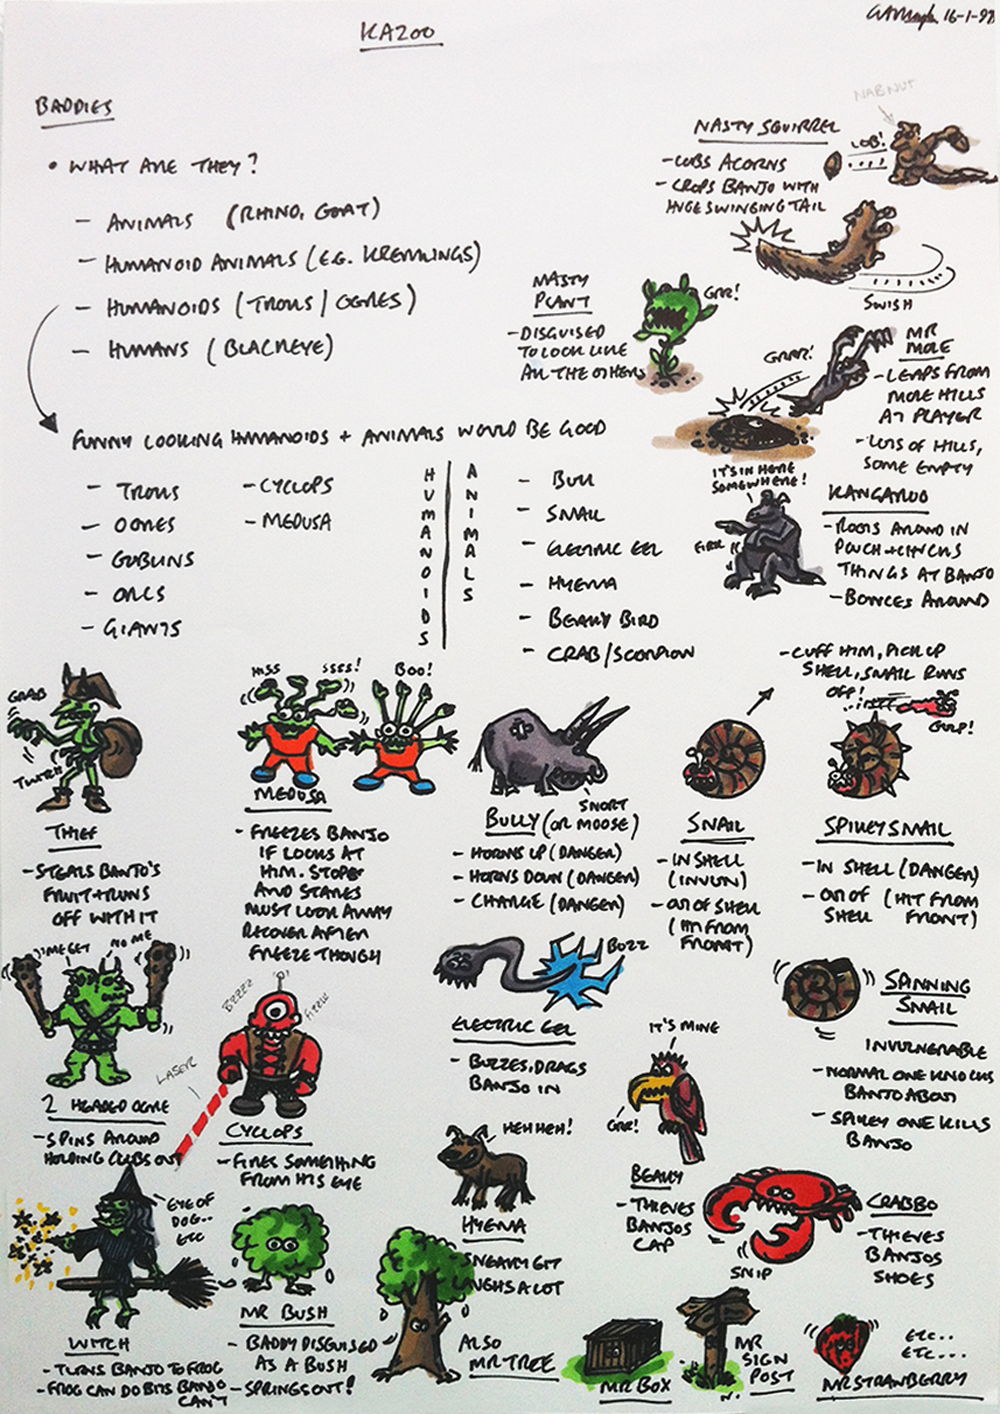 KAZOO
16-1-97
BADDIES
• WHAT ARE THEY?
- ANIMALS (RHINO, GOAT)
- HUMANOID ANIMALS (E.G. KREMLINGS)
- HUMANOIDS (TROLLS / OGRES)
- HUMANS (BLACKEYE)
FUNNY LOOKING HUMANOIDS + ANIMALS WOULD BE GOOD
HUMANOIDS
- TROLLS
- OGRES
- GOBLINS
- ORCS
- GIANTS
- CYCLOPS
- MEDUSA
ANIMALS
- BULL
- SNAIL
- ELECTRIC EEL
- HYENA
- BEAKY BIRD
- CRAB/SCORPION
NABNUT
NASTY SQUIRREL
- LOBS ACORNS
- CROPS BANJO WITH
HUGE SWINGING TAIL
LOB!
SWISH
NASTY
PLANT
- DISGUISED
TO LOOK LIKE
ALL THE OTHERS
GRR!
MR
MOLE
- LEAPS FROM
MOLE HILLS
AT PLAYER
- LOTS OF HILLS,
SOME EMPTY
GRRR!
IT'S IN HERE
SOMEWHERE!
KANGAROO
- ROOTS AROUND IN
POUCH + CHUCKS
THINGS AT BANJO
- BOUNCES AROUND
GRAB
TWITCH
THIEF
- STEALS BANJO'S
FRUIT + RUNS
OFF WITH IT
HISS
SSSS!
BOO!
MEDUSA
- FREEZES BANJO
IF LOOKS AT
HIM. STOPS
AND STARES
MUST LOOK AWAY
RECOVER AFTER
FREEZE THOUGH
SNORT
BULLY (OR MOOSE)
- HORNS UP (DANGER)
- HORNS DOWN (DANGER)
- CHARGE (DANGER)
SNAIL
- IN SHELL
(INVUN)
- OUT OF SHELL
(HIT FROM
FRONT)
- CUFF HIM, PICK UP
SHELL, SNAIL RUNS
OFF!
GULP!
SPIKEY SNAIL
- IN SHELL (DANGER)
- OUT OF SHELL (HIT FROM FRONT)
ME GET
NO ME
2 HEADED OGRE
- SPINS AROUND
HOLDING CLUBS OUT
BZZZZ
LASER
CYCLOPS
- FIRES SOMETHING
FROM HIS EYE
BUZZ
ELECTRIC EEL
- BUZZES, DRAGS
BANJO IN
SPINNING
SNAIL
INVULNERABLE
- NORMAL ONE KNOCKS
BANJO ABOUT
- SPIKEY ONE KILLS
BANJO
IT'S MINE
GRR!
BEAKY
- THIEVES
BANJOS
CAP
HEH HEH!
HYENA
SNEAKY GIT
LAUGHS A LOT
SNIP
CRABBO
- THIEVES
BANJOS
SHOES
EYE OF
DOG..
ETC
WITCH
- TURNS BANJO TO FROG
- FROG CAN DO BITS BANJO
CAN'T
MR BUSH
- BADDY DISGUISED
AS A BUSH
- SPRINGS OUT!
ALSO
MR TREE
MR BOX
MR
SIGN
POST
ETC..
ETC....
MR STRAWBERRY